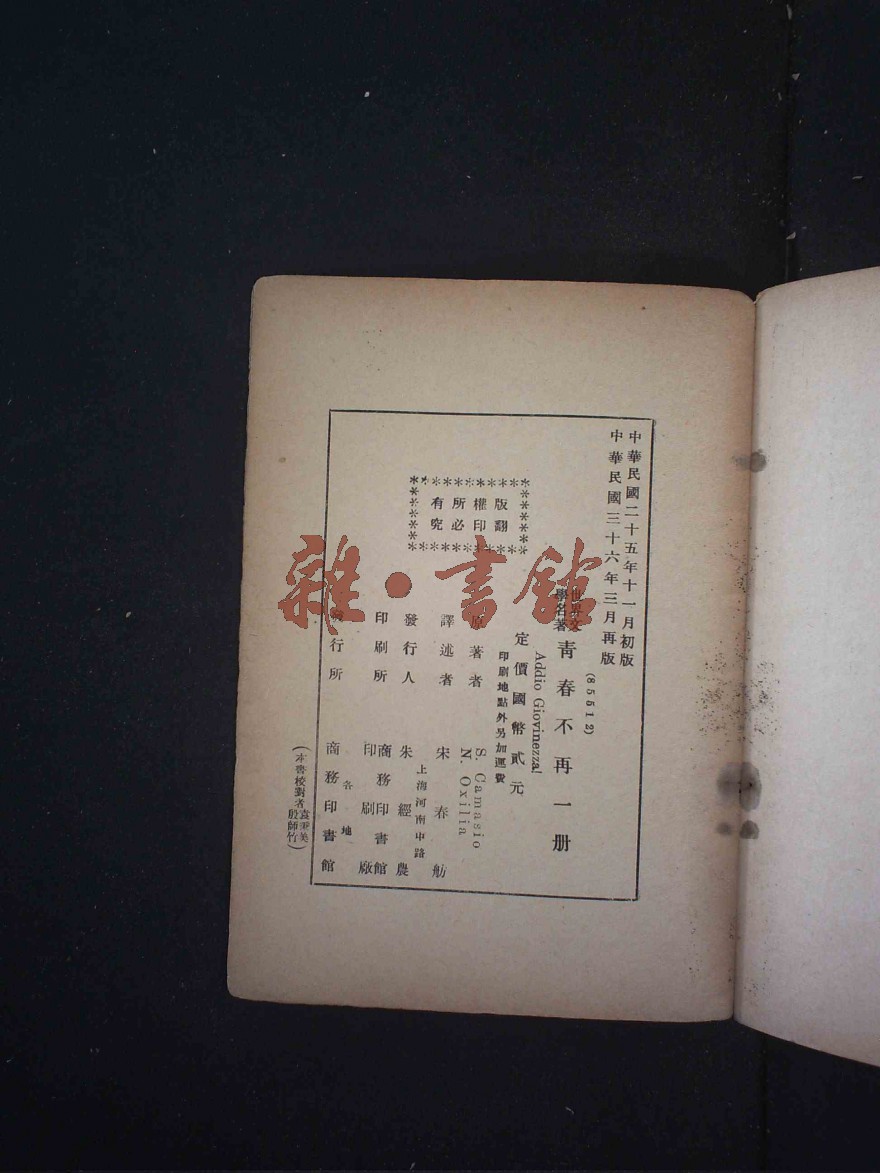 中華民國二十五年十一月初版
中華民國三十六年三月再版
(85512)
世界文學名著
青春不再一册
Addio Giovinezza!
定價國幣貳元
印刷地點外另加運費
版權所有
翻印必究
原著者 S. Camasio
N. Oxilia
譯述者 宋春舫
上海河南中路
發行人 朱經農
印刷所 商務印書館
印刷廠
各地
發行所 商務印書館
(本書校對者 袁秉美
殷師竹)
雜·書館